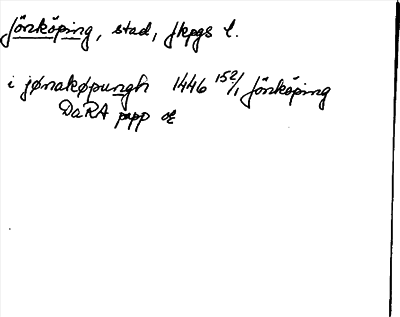 Jönköping, stad, Jkpgs l.
i jønakøpungh 1446 15 2/1 Jönköping
DaRA papp or